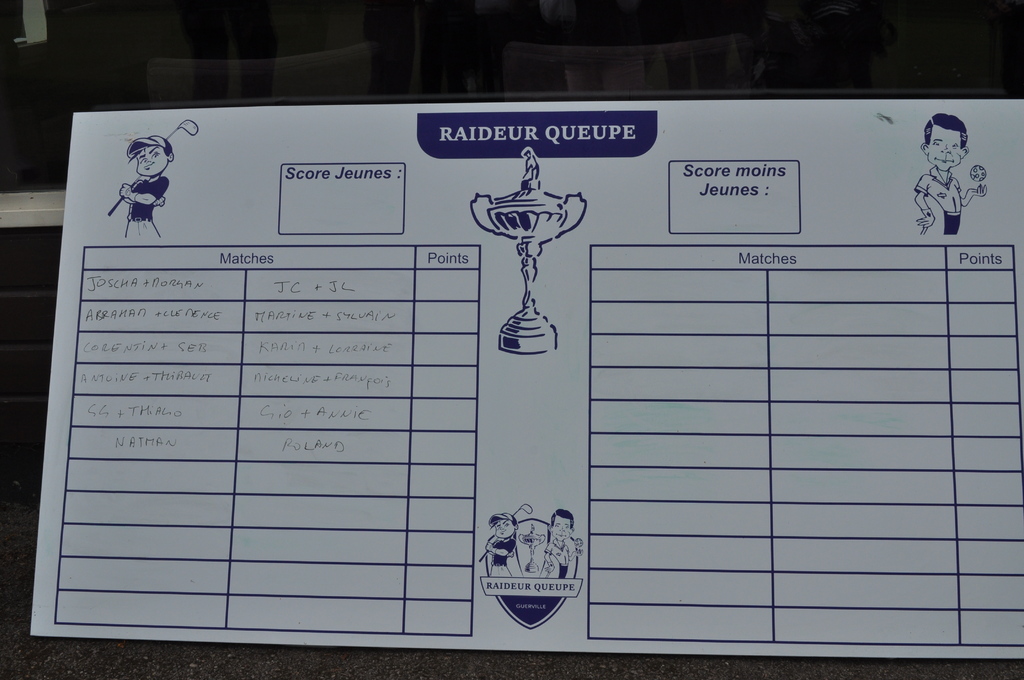 RAIDEUR QUEUPE
Score Jeunes :
Score moins
Jeunes :
Matches Points
JOSCHA + MORGAN JC + JL
ABRAHAM + CLEMENCE MARTINE + SYLVAIN
CORENTIN + SEB KARIN + LORRAINE
ANTOINE + THIBAULT MICHELINE + FRANÇOIS
GG + THIAGO GIO + ANNIE
NATHAN ROLAND
Matches Points
RAIDEUR QUEUPE
GUERVILLE